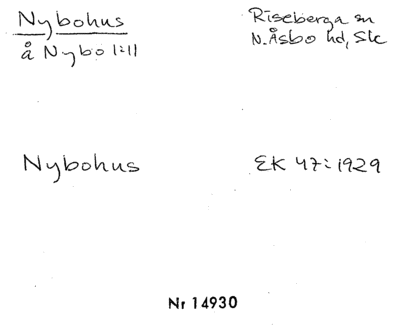 Nybohus
å Nybo 1:11
Riseberga sn
N. Åsbo hd, Sk
Nybohus
EK 47:1929
Nr 14930